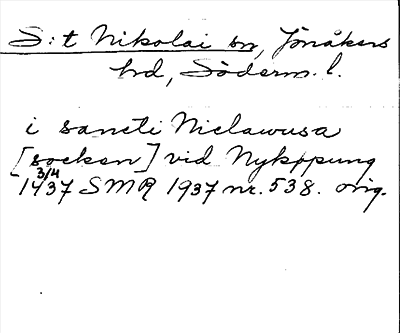 S:t Nikolai sn, Jönåkers
hd, Söderm. l.
i sancti Niclawusa
[socken] vid Nykøpung
3/4
1437 SMR 1937 nr. 538. orig.